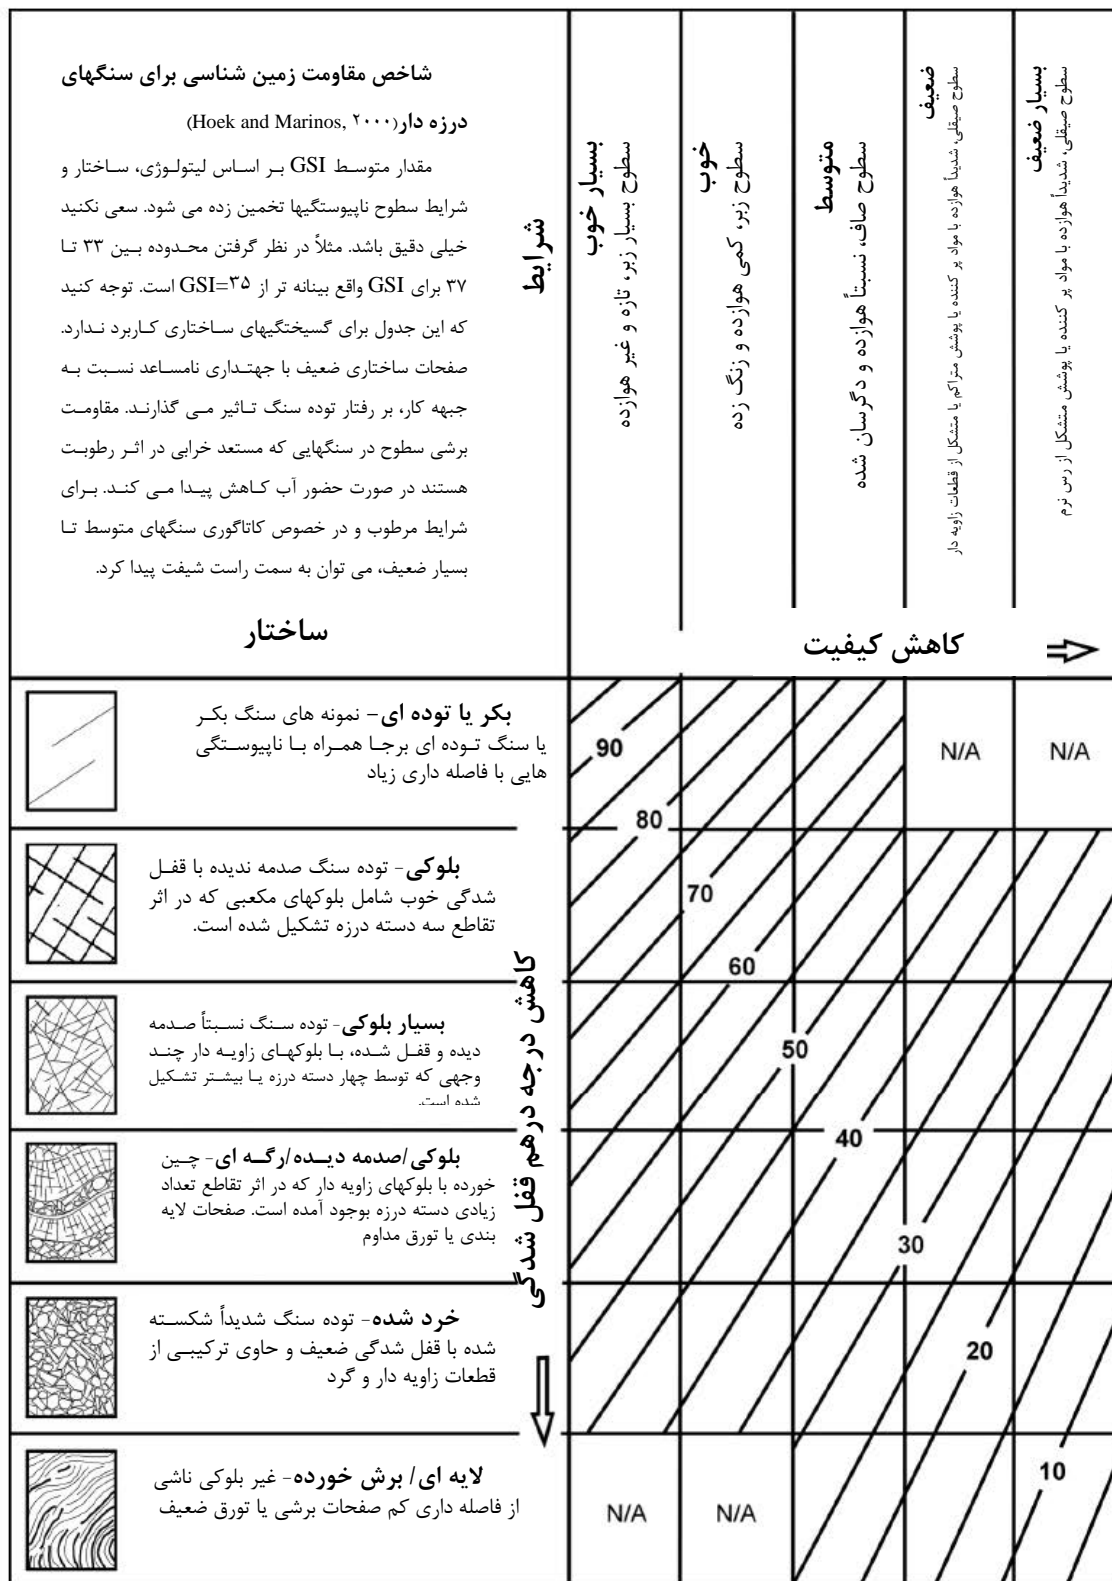 شاخص مقاومت زمین شناسی برای سنگهای
درزه دار(Hoek and Marinos, ۲۰۰۰)
مقدار متوسط GSI بر اساس لیتولوژی، ساختار و
شرایط سطوح ناپیوستگیها تخمین زده می شود. سعی نکنید
خیلی دقیق باشد. مثلاً در نظر گرفتن محدوده بین ۳۳ تا
۳۷ برای GSI واقع بینانه تر از GSI=۳۵ است. توجه کنید
که این جدول برای گسیختگیهای ساختاری کاربرد ندارد.
صفحات ساختاری ضعیف با جهتداری نامساعد نسبت به
جبهه کار، بر رفتار توده سنگ تاثیر می گذارند. مقاومت
برشی سطوح در سنگهایی که مستعد خرابی در اثر رطوبت
هستند در صورت حضور آب کاهش پیدا می کند. برای
شرایط مرطوب و در خصوص کاتاگوری سنگهای متوسط تا
بسیار ضعیف، می توان به سمت راست شیفت پیدا کرد.
ساختار
شرایط
بسیار خوب
سطوح بسیار زبر، تازه و غیر هوازده
خوب
سطوح زبر، کمی هوازده و زنگ زده
متوسط
سطوح صاف، نسبتاً هوازده و دگرسان شده
ضعیف
سطوح صیقلی، شدیداً هوازده با مواد پر کننده یا پوشش متراکم یا متشکل از قطعات زاویه دار
بسیار ضعیف
سطوح صیقلی، شدیداً هوازده با مواد پر کننده یا پوشش متشکل از رس نرم
کاهش کیفیت
کاهش درجه درهم قفل شدگی
بکر یا توده ای – نمونه های سنگ بکر
یا سنگ توده ای برجا همراه با ناپیوستگی
هایی با فاصله داری زیاد
90
80
N/A
N/A
بلوکی- توده سنگ صدمه ندیده با قفل
شدگی خوب شامل بلوکهای مکعبی که در اثر
تقاطع سه دسته درزه تشکیل شده است.
70
60
بسیار بلوکی- توده سنگ نسبتاً صدمه
دیده و قفل شده، با بلوکهای زاویه دار چند
وجهی که توسط چهار دسته درزه یا بیشتر تشکیل
شده است.
50
بلوکی/صدمه دیده/رگه ای- چین
خورده با بلوکهای زاویه دار که در اثر تقاطع تعداد
زیادی دسته درزه بوجود آمده است. صفحات لایه
بندی یا تورق مداوم
40
30
خرد شده- توده سنگ شدیداً شکسته
شده با قفل شدگی ضعیف و حاوی ترکیبی از
قطعات زاویه دار و گرد
20
لایه ای/ برش خورده- غیر بلوکی ناشی
از فاصله داری کم صفحات برشی یا تورق ضعیف
N/A
N/A
10